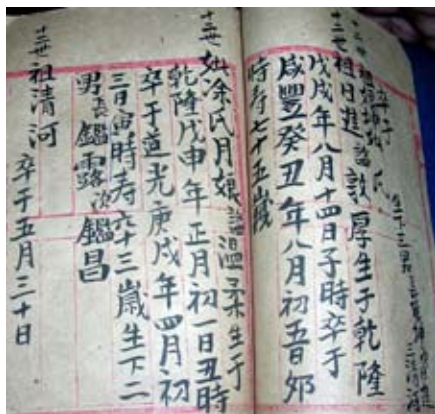 十二世祖日進謚敦厚生于乾隆
戊戌年八月十四日子時卒于
咸豐癸丑年八月初五日夘
時寿七十五歲
十二世妣涂氏月娘謚溫柔生于
乾隆戊申年正月初一日丑時
卒于道光庚戌年四月初
三日寅時寿六十三歲生下二
男長鑑露次鑑昌
十三世祖清河
卒于五月三十日